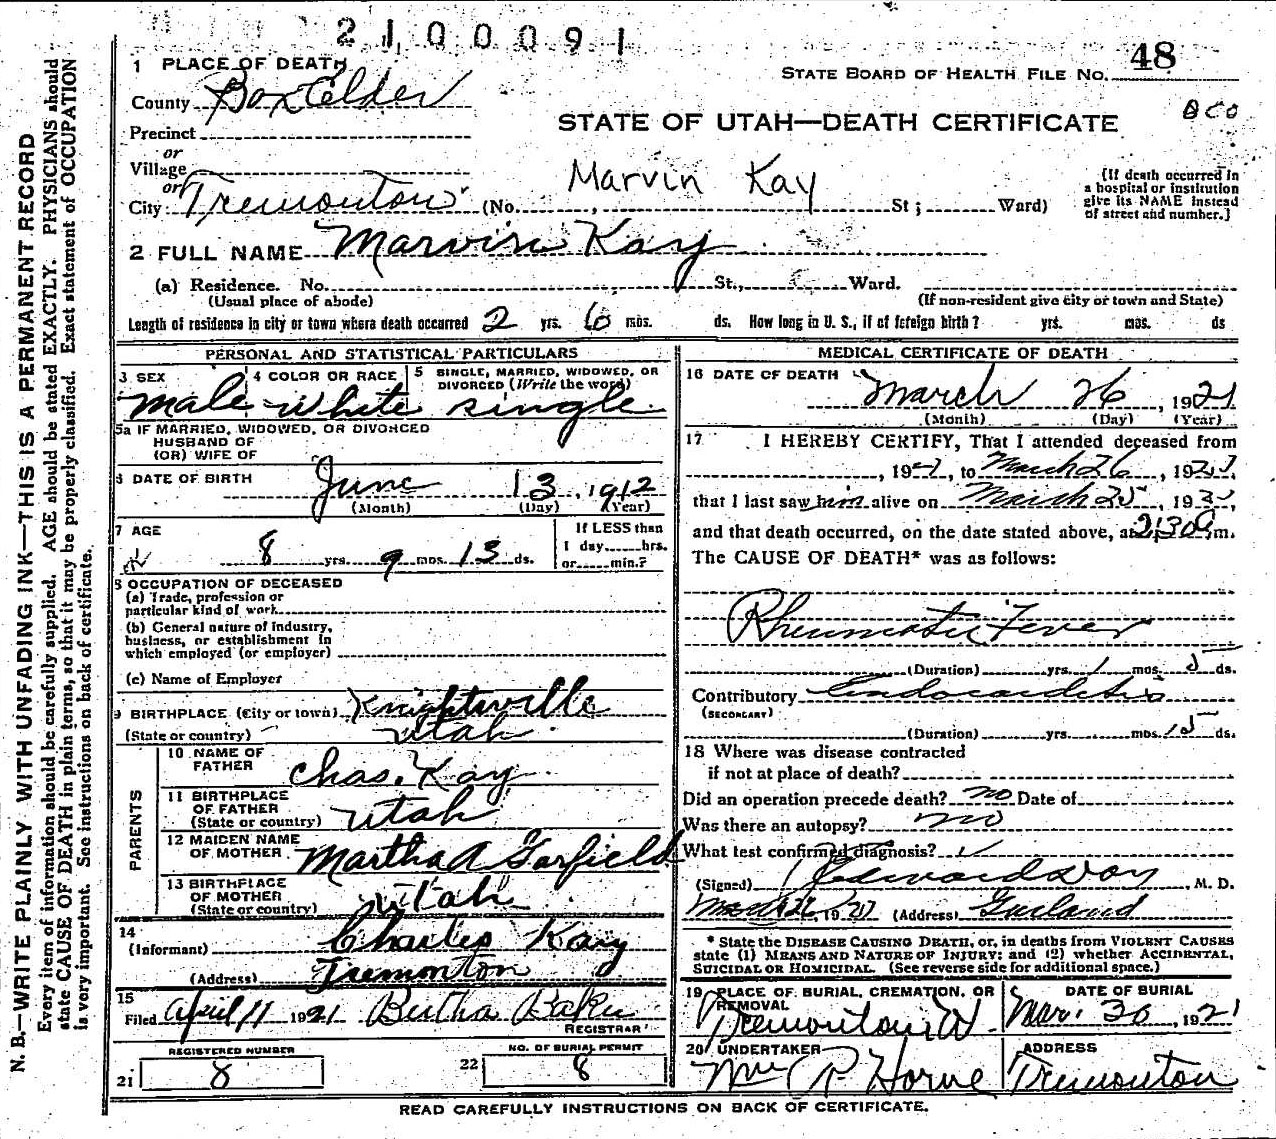 2100091
48
STATE BOARD OF HEALTH FILE NO.
1 PLACE OF DEATH
County Box Elder
BCO
STATE OF UTAH—DEATH CERTIFICATE
Precinct
or
Village
or
Marvin Kay
City Tremonton (No. , St; Ward)
(If death occurred in
a hospital or institution
give its NAME instead
of street and number.]
2 FULL NAME Marvin Kay
(a) Residence. No. St., Ward.
(Usual place of abode)
(If non-resident give city or town and State)
Length of residence in city or town where death occurred 2 yrs. 6 mos. ds. How long in U. S., if of foreign birth? yrs. mos. ds
PERSONAL AND STATISTICAL PARTICULARS
3 SEX
male
4 COLOR OR RACE
white
5 SINGLE, MARRIED, WIDOWED, OR
DIVORCED (Write the word)
single
5a IF MARRIED, WIDOWED, OR DIVORCED
HUSBAND OF
(OR) WIFE OF
6 DATE OF BIRTH June 13, 1912
(Month) (Day) (Year)
7 AGE
8 yrs. 9 mos. 13 ds.
If LESS than
1 day......hrs.
or......min.?
8 OCCUPATION OF DECEASED
(a) Trade, profession or
particular kind of work
(b) General nature of industry,
business, or establishment in
which employed (or employer)
(c) Name of Employer
9 BIRTHPLACE (City or town) Knightsville
(State or country) Utah
PARENTS
10 NAME OF
FATHER Chas. Kay
11 BIRTHPLACE
OF FATHER
(State or country) Utah
12 MAIDEN NAME
OF MOTHER Martha A Garfield
13 BIRTHPLACE
OF MOTHER
(State or country) Utah
14
(Informant) Charles Kay
(Address) Tremonton
15
Filed April 11 1921 Bertha Baker
REGISTRAR
REGISTERED NUMBER
21 8
NO. OF BURIAL PERMIT
22 8
MEDICAL CERTIFICATE OF DEATH
16 DATE OF DEATH March 26, 1921
(Month) (Day) (Year)
17 I HEREBY CERTIFY, That I attended deceased from
, 192 , to March 26, 1921,
that I last saw him alive on March 25, 192 ,
and that death occurred, on the date stated above, at 2:30 a m.
The CAUSE OF DEATH* was as follows:
Rheumatic Fever
(Duration) yrs. 1 mos. 5 ds.
Contributory Endocarditis
(SECONDARY)
(Duration) yrs. mos. 15 ds.
18 Where was disease contracted
if not at place of death?
Did an operation precede death? no Date of
Was there an autopsy? no
What test confirmed diagnosis?
(Signed) , M. D.
March 26, 1921 (Address) Garland
* State the DISEASE CAUSING DEATH, or, in deaths from VIOLENT CAUSES
state (1) MEANS AND NATURE OF INJURY; and (2) whether ACCIDENTAL,
SUICIDAL OR HOMICIDAL. (See reverse side for additional space.)
19 PLACE OF BURIAL, CREMATION, OR
REMOVAL
Tremonton U.
DATE OF BURIAL
Mar. 30, 1921
20 UNDERTAKER
Wm P Horne
ADDRESS
Tremonton
READ CAREFULLY INSTRUCTIONS ON BACK OF CERTIFICATE.
N. B.—WRITE PLAINLY WITH UNFADING INK—THIS IS A PERMANENT RECORD
Every item of information should be carefully supplied. AGE should be stated EXACTLY. PHYSICIANS should
state CAUSE OF DEATH in plain terms, so that it may be properly classified. Exact statement of OCCUPATION
is very important. See instructions on back of certificate.